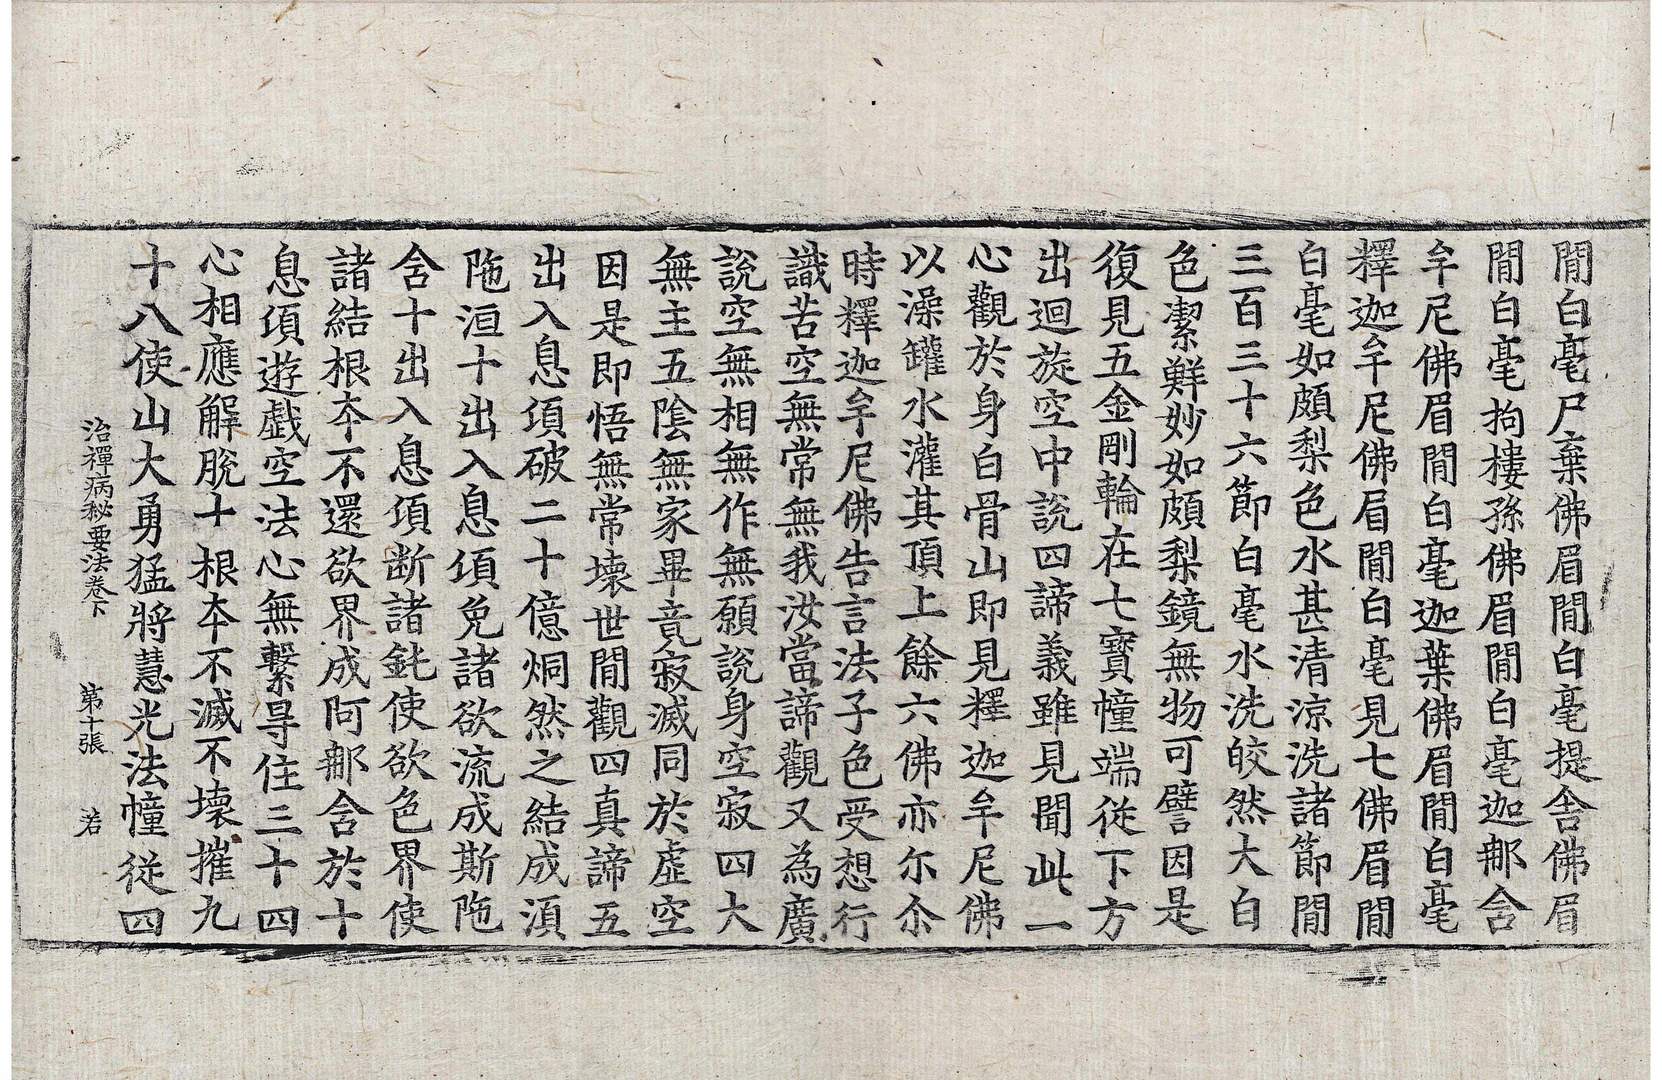 間白毫尸棄佛眉間白毫提舍佛眉
間白毫拘樓孫佛眉間白毫迦那含
牟尼佛眉間白毫迦葉佛眉間白毫
釋迦牟尼佛眉間白毫見七佛眉間
白毫如頗梨色水甚清涼洗諸節間
三百三十六節白毫水洗皎然大白
色潔鮮妙如頗梨鏡無物可譬因是
復見五金剛輪在七寶幢端從下方
出迴旋空中說四諦義雖見聞此一
心觀於身白骨山即見釋迦牟尼佛
以澡罐水灌其頂上餘六佛亦尒尒
時釋迦牟尼佛告言法子色受想行
識苦空無常無我汝當諦觀又為廣
說空無相無作無願說身空寂四大
無主五陰無家畢竟寂滅同於虛空
因是即悟無常壞世間觀四真諦五
出入息頃破二十億烔然之結成湏
陁洹十出入息頃免諸欲流成斯陁
含十出入息頃断諸鈍使欲色界使
諸結根本不還欲界成阿那含於十
息頃遊戲空法心無繫㝵住三十四
心相應解脫十根本不滅不壞摧九
十八使山大勇猛將慧光法幢從四
治禪病秘要法卷下　第十張　若